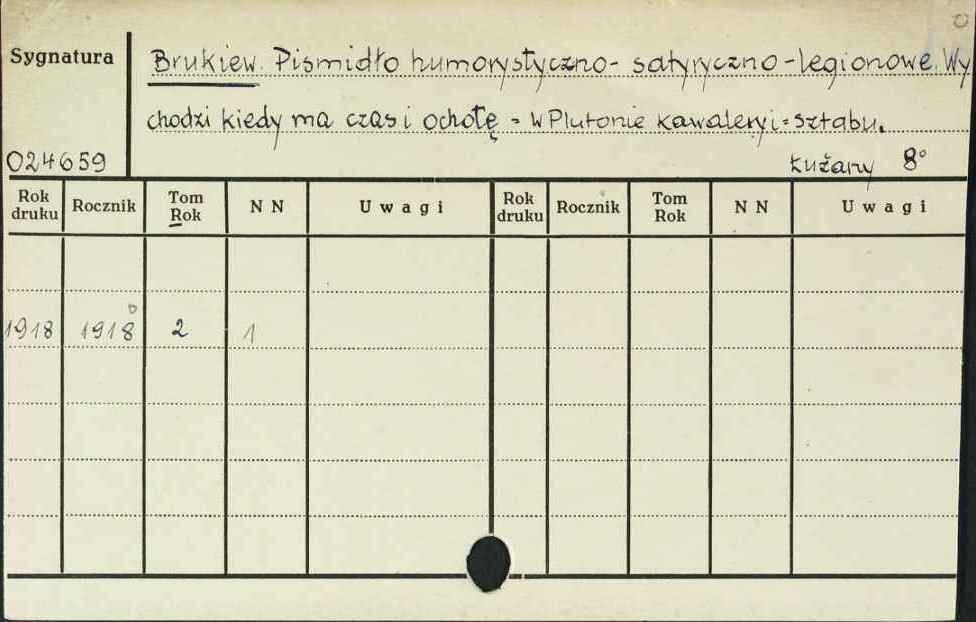 Sygnatura
Brukiew. Pismidło humorystyczno-satyryczno-legionowe. Wy
chodzi kiedy ma czas i ochotę = w Plutonie kawaleryi=sztabu.
024659
Łużany 8°
Rok druku Rocznik Tom Rok NN Uwagi Rok druku Rocznik Tom Rok NN Uwagi
1918 1918 2 1